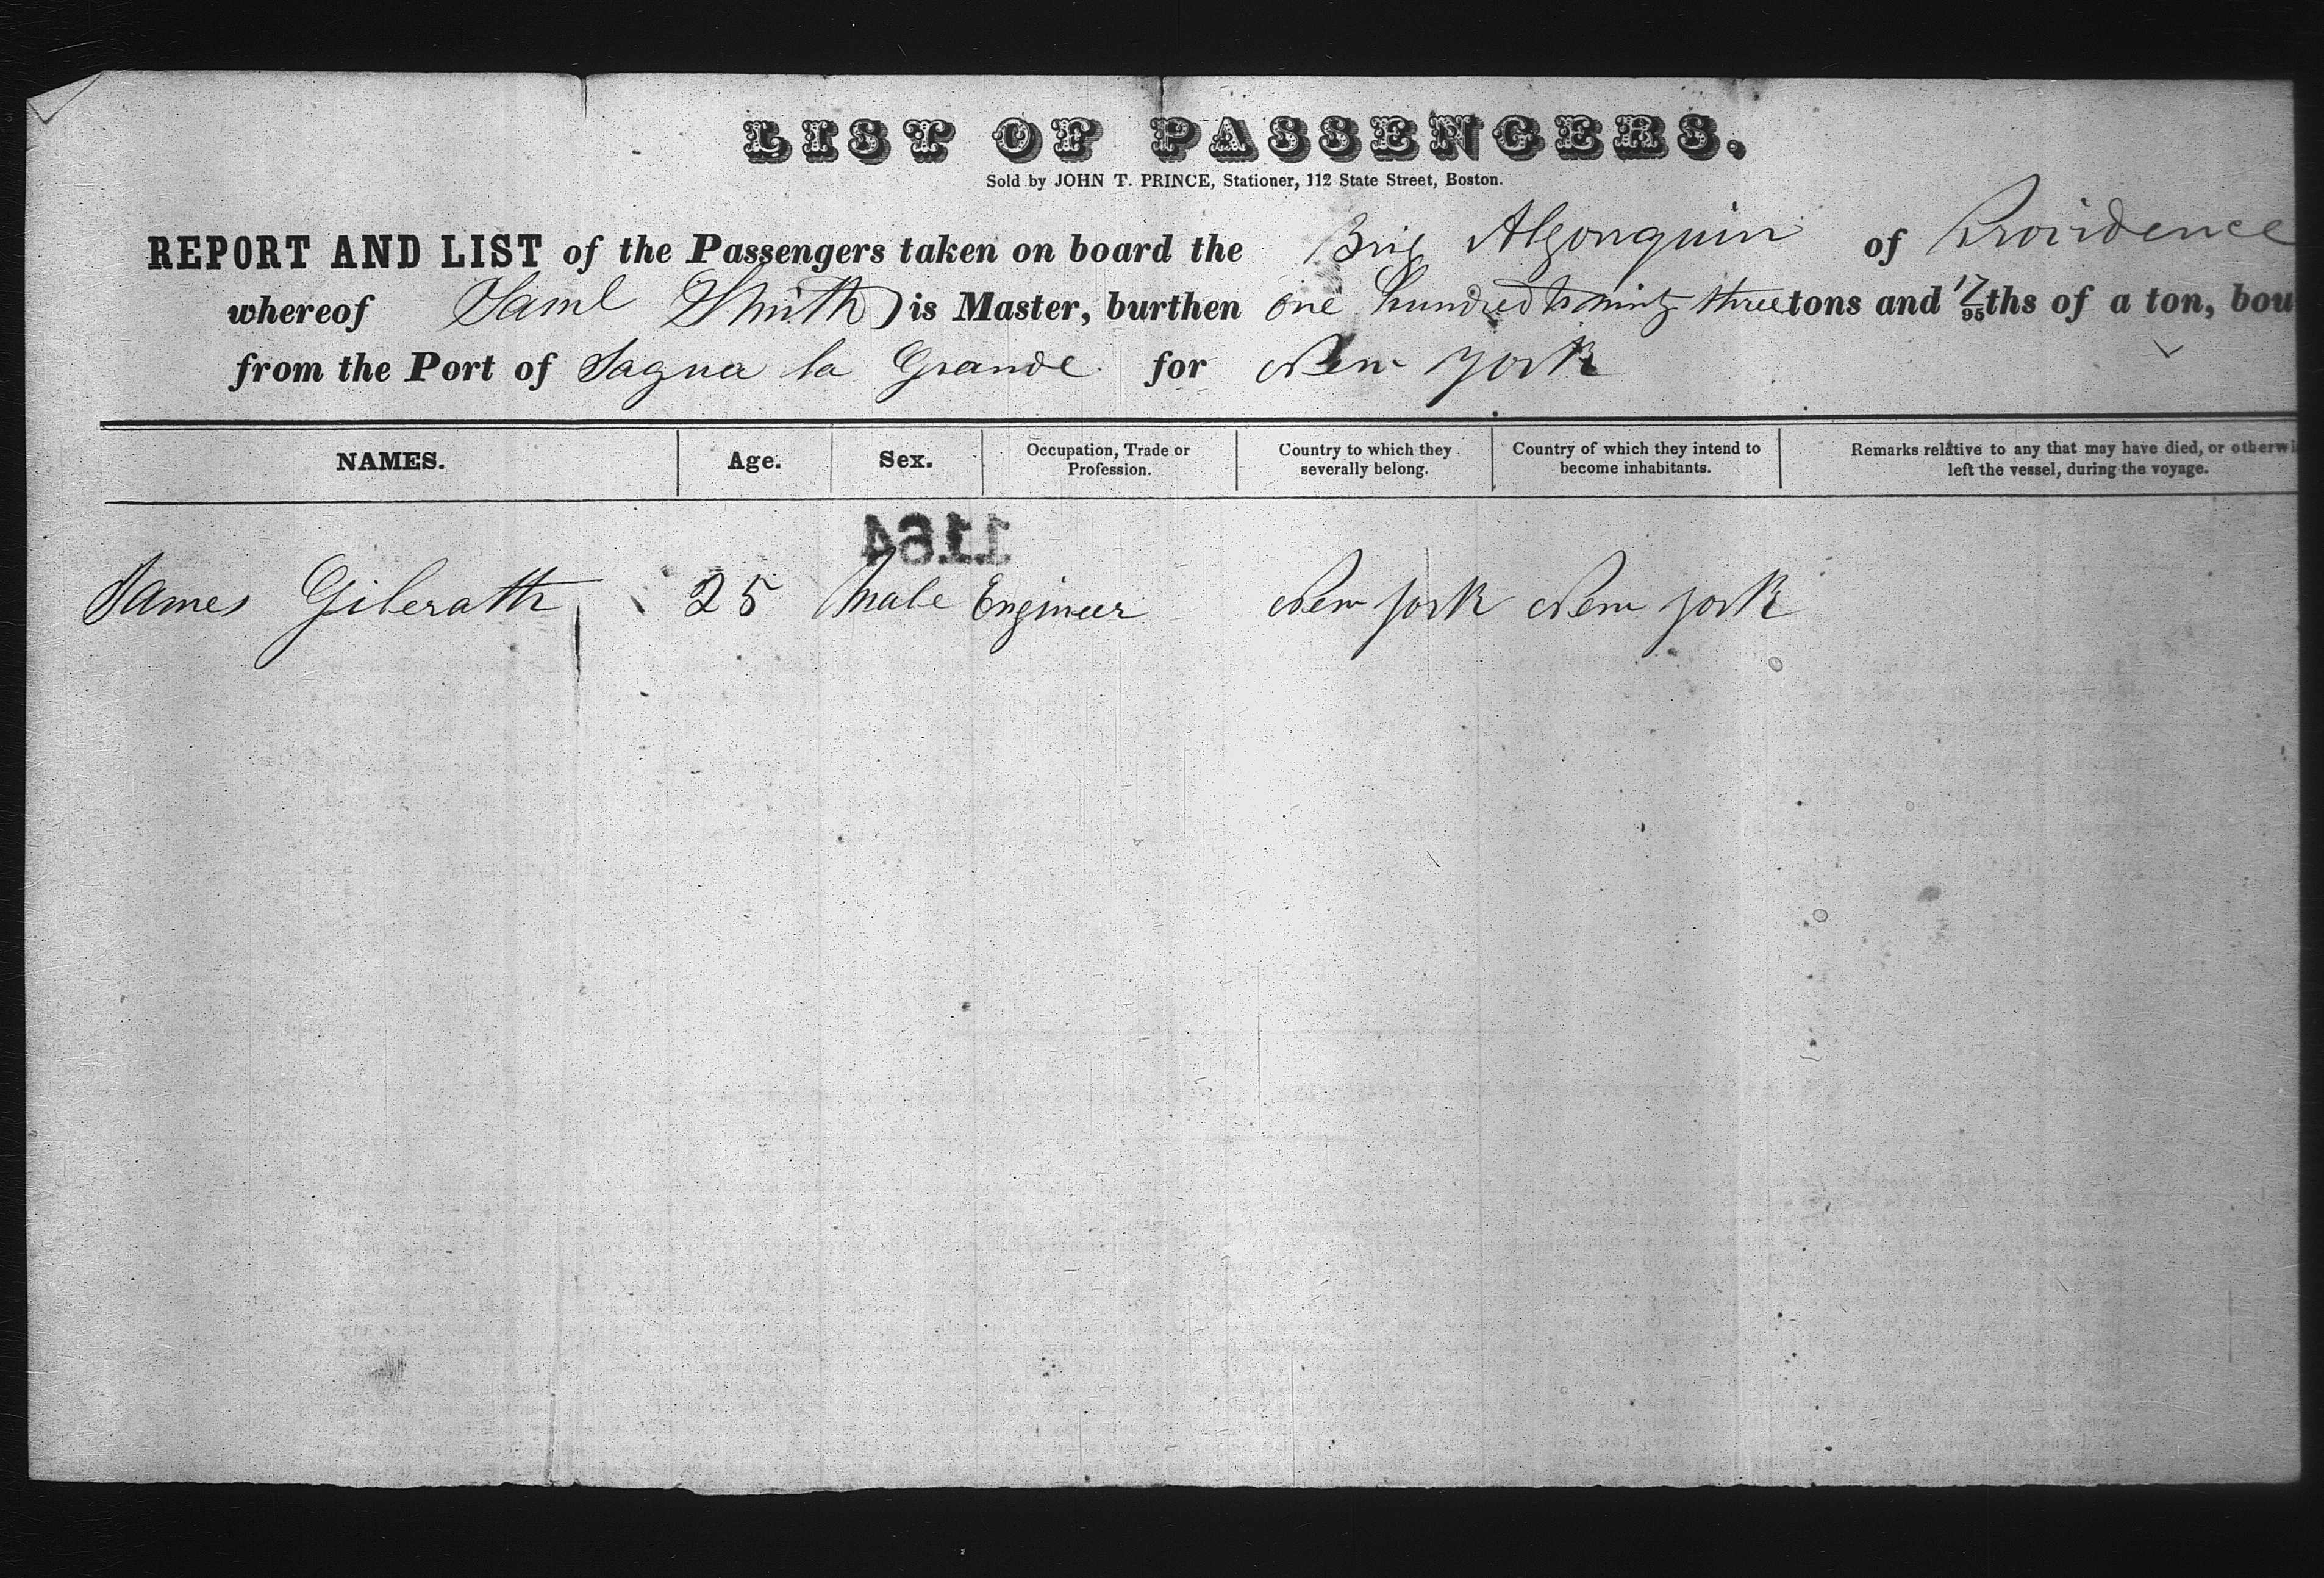 LIST OF PASSENGERS.
Sold by JOHN T. PRINCE, Stationer, 112 State Street, Boston.
REPORT AND LIST of the Passengers taken on board the Brig Algonquin of Providence
whereof Saml Smith is Master, burthen one hundred & ninty three tons and 17/95ths of a ton, bou
from the Port of Sagua la Grande for New York
NAMES. Age. Sex. Occupation, Trade or Profession. Country to which they severally belong. Country of which they intend to become inhabitants. Remarks relative to any that may have died, or otherwi left the vessel, during the voyage.
1164
James Gilerath 25 Male Engineer New York New York